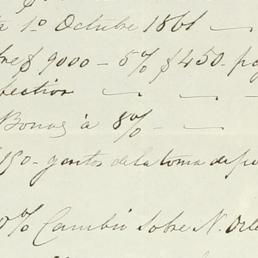 1º Octubre 1861
$9000 - 5% $450. po
Bonos à 8% -
150 - gastos de la toma de po
% Cambio sobre N. Orle